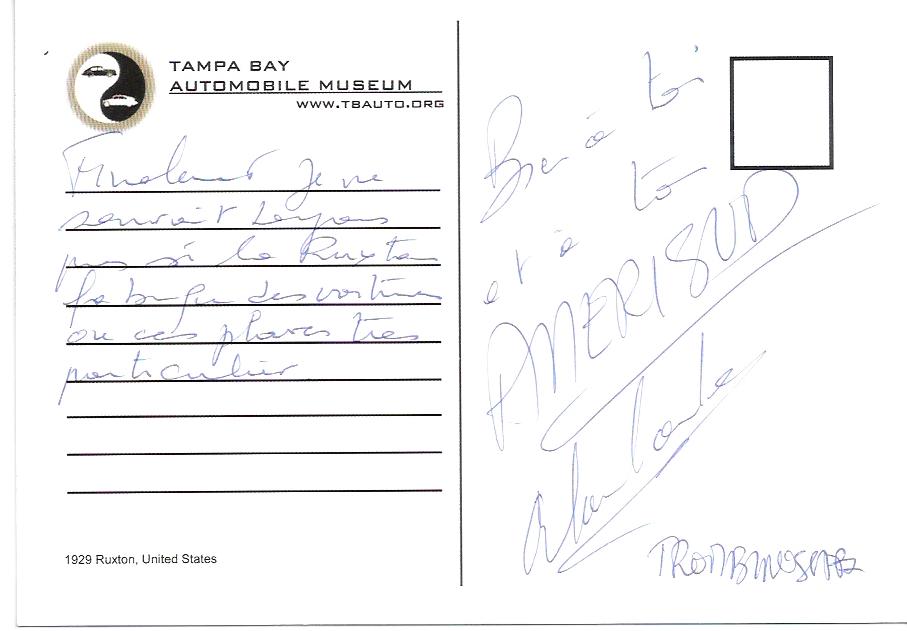 TAMPA BAY
AUTOMOBILE MUSEUM
WWW.TBAUTO.ORG
Finalement Je ne
toujours
pas si la Ruxton
des voitures
ou ces phares très
particulier
1929 Ruxton, United States
Bien à toi
et à toi
AMERISUD